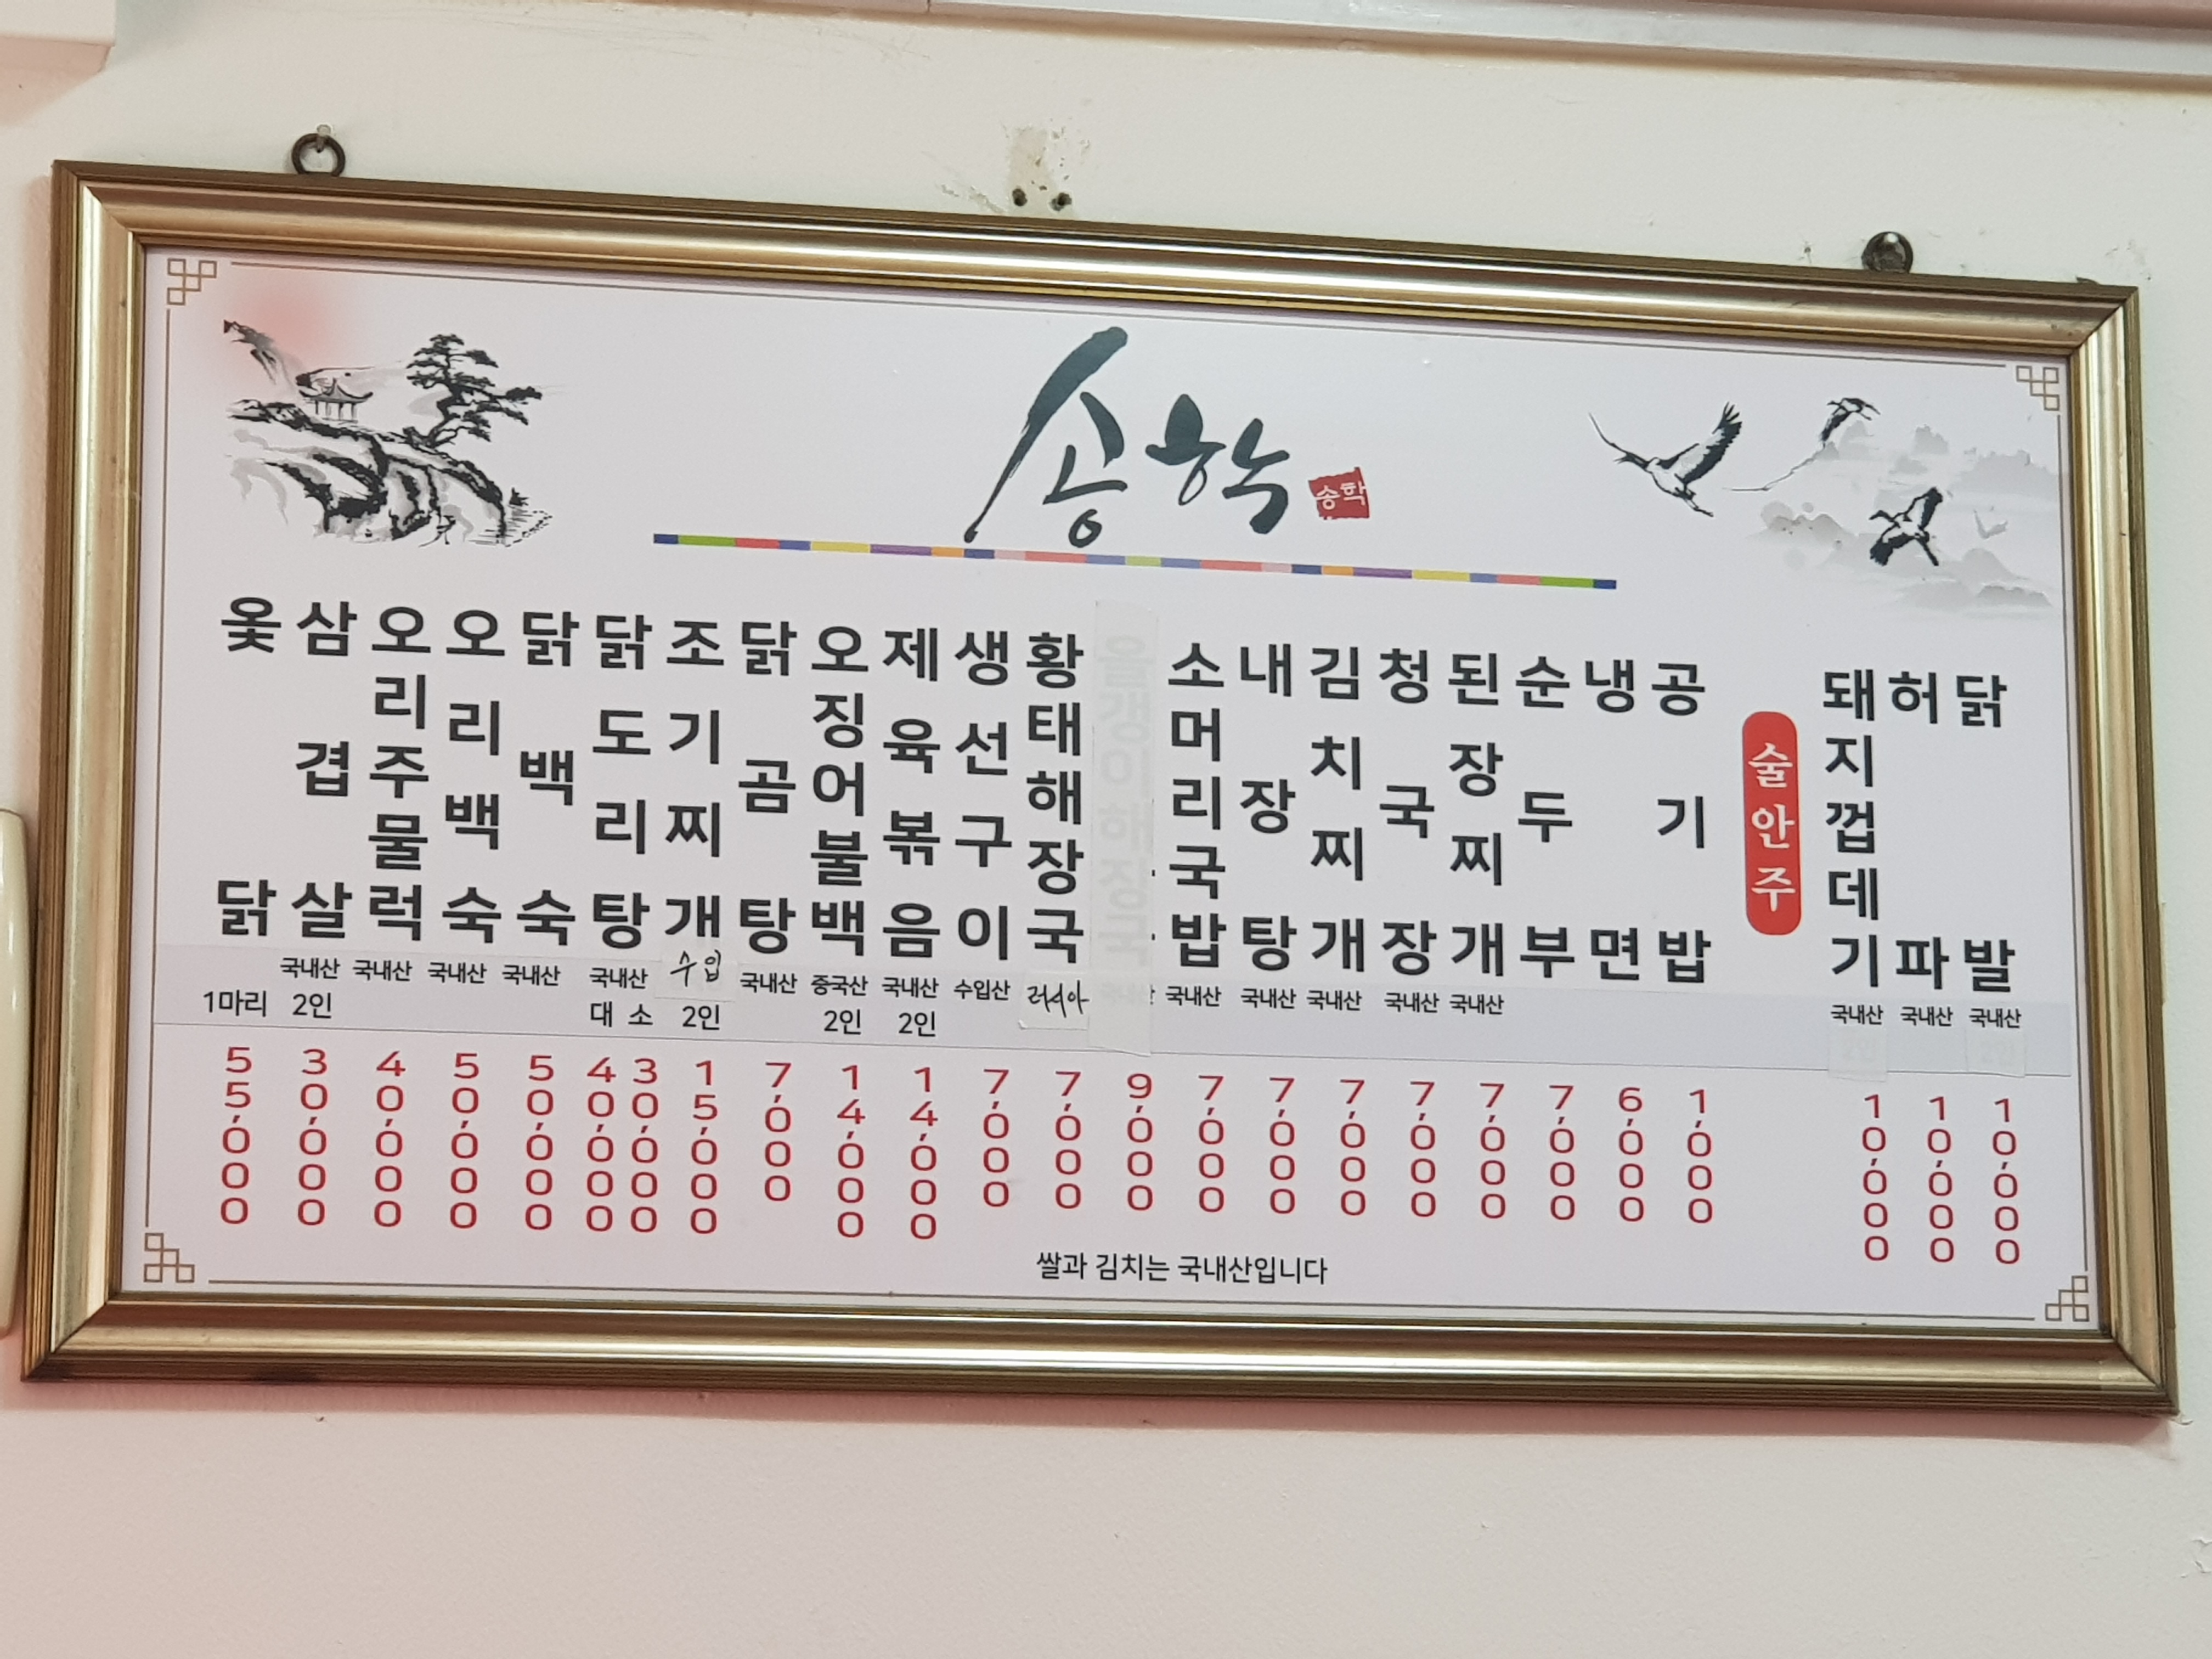 송학
송학
옻닭 1마리 55,000
삼겹살 국내산 2인 30,000
오리주물럭 국내산 40,000
오리백숙 국내산 50,000
닭백숙 국내산 50,000
닭도리탕 국내산 대 40,000 소 30,000
조기찌개 수입 2인 15,000
닭곰탕 국내산 7,000
오징어불백 중국산 2인 14,000
제육볶음 국내산 2인 14,000
생선구이 수입산 7,000
황태해장국 러시아 7,000
올갱이해장국 국내산 9,000
소머리국밥 국내산 7,000
내장탕 국내산 7,000
김치찌개 국내산 7,000
청국장 국내산 7,000
된장찌개 국내산 7,000
순두부 7,000
냉면 6,000
공기밥 1,000
술안주
돼지껍데기 국내산 2인 10,000
허파 국내산 10,000
닭발 국내산 2인 10,000
쌀과 김치는 국내산입니다